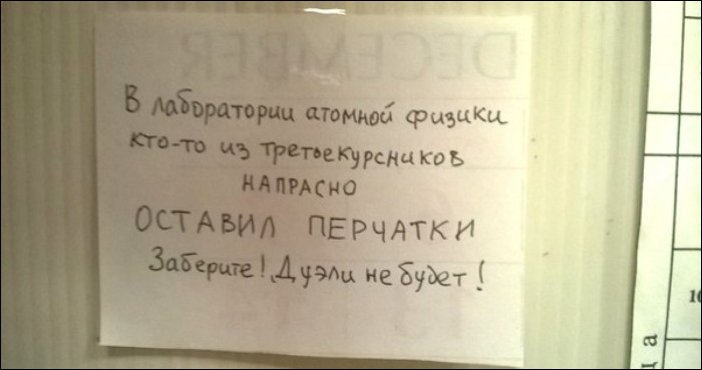 DECEMBER
В лаборатории атомной физики
кто-то из третьекурсников
НАПРАСНО
ОСТАВИЛ ПЕРЧАТКИ
Заберите! Дуэли не будет!